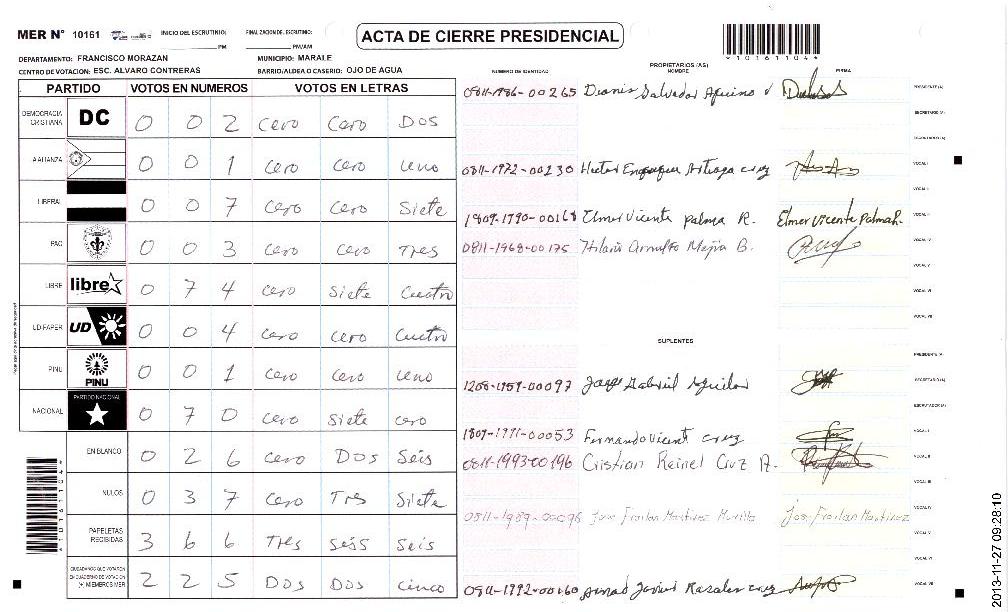 MER N° 10161 INICIO DEL ESCRUTINIO: PM FINALIZACION DEL ESCRUTINIO: PM/AM
ACTA DE CIERRE PRESIDENCIAL
*10161104*
DEPARTAMENTO: FRANCISCO MORAZAN MUNICIPIO: MARALE
CENTRO DE VOTACION: ESC. ALVARO CONTRERAS BARRIO/ALDEA O CASERIO: OJO DE AGUA
PARTIDO VOTOS EN NUMEROS VOTOS EN LETRAS
DEMOCRACIA CRISTIANA DC 0 0 2 Cero Cero Dos
A.ALIANZA 0 0 1 Cero Cero Uno
LIBERAL 0 0 7 Cero Cero Siete
PAC 0 0 3 Cero Cero Tres
LIBRE libre 0 7 4 Cero Siete Cuatro
UD/FAPER UD 0 0 4 Cero Cero Cuatro
PINU PINU 0 0 1 Cero Cero Uno
NACIONAL PARTIDO NACIONAL 0 7 0 Cero Siete Cero
EN BLANCO 0 2 6 Cero Dos Seis
NULOS 0 3 7 Cero Tres Siete
PAPELETAS RECIBIDAS 3 6 6 Tres Seis Seis
CIUDADANOS QUE VOTARON EN CUADERNO DE VOTACION + MIEMBROS MER 2 2 5 Dos Dos Cinco
*10161104*
PROPIETARIOS (AS)
NUMERO DE IDENTIDAD NOMBRE FIRMA
0811-1986-00265 Salvador PRESIDENTE (A)
SECRETARIO (A)
ESCRUTADOR (A)
0811-1972-00230 Hector Enrique Artiaga cruz VOCAL I
VOCAL II
1809-1990-00168 Elmer Vicente palma R. Elmer Vicente Palma R.
0811-1968-00175 Hilario Arnulfo Mejia B. VOCAL IV
VOCAL V
VOCAL VI
VOCAL VII
SUPLENTES
PRESIDENTE (A)
1200-1959-00097 Jorge Gabriel Aguilar SECRETARIO (A)
ESCRUTADOR (A)
1807-1991-00053 Fernando Vicent cruz VOCAL I
0811-1993-00196 Cristian Reinel Cruz A. VOCAL II
VOCAL III
0811-1989-00096 Jose Froilan Martinez Murillo Jose Froilan Martinez VOCAL IV
VOCAL V
VOCAL VI
0811-1992-00160 Javier Rosales cruz VOCAL VII
2013-11-27 09:28:10